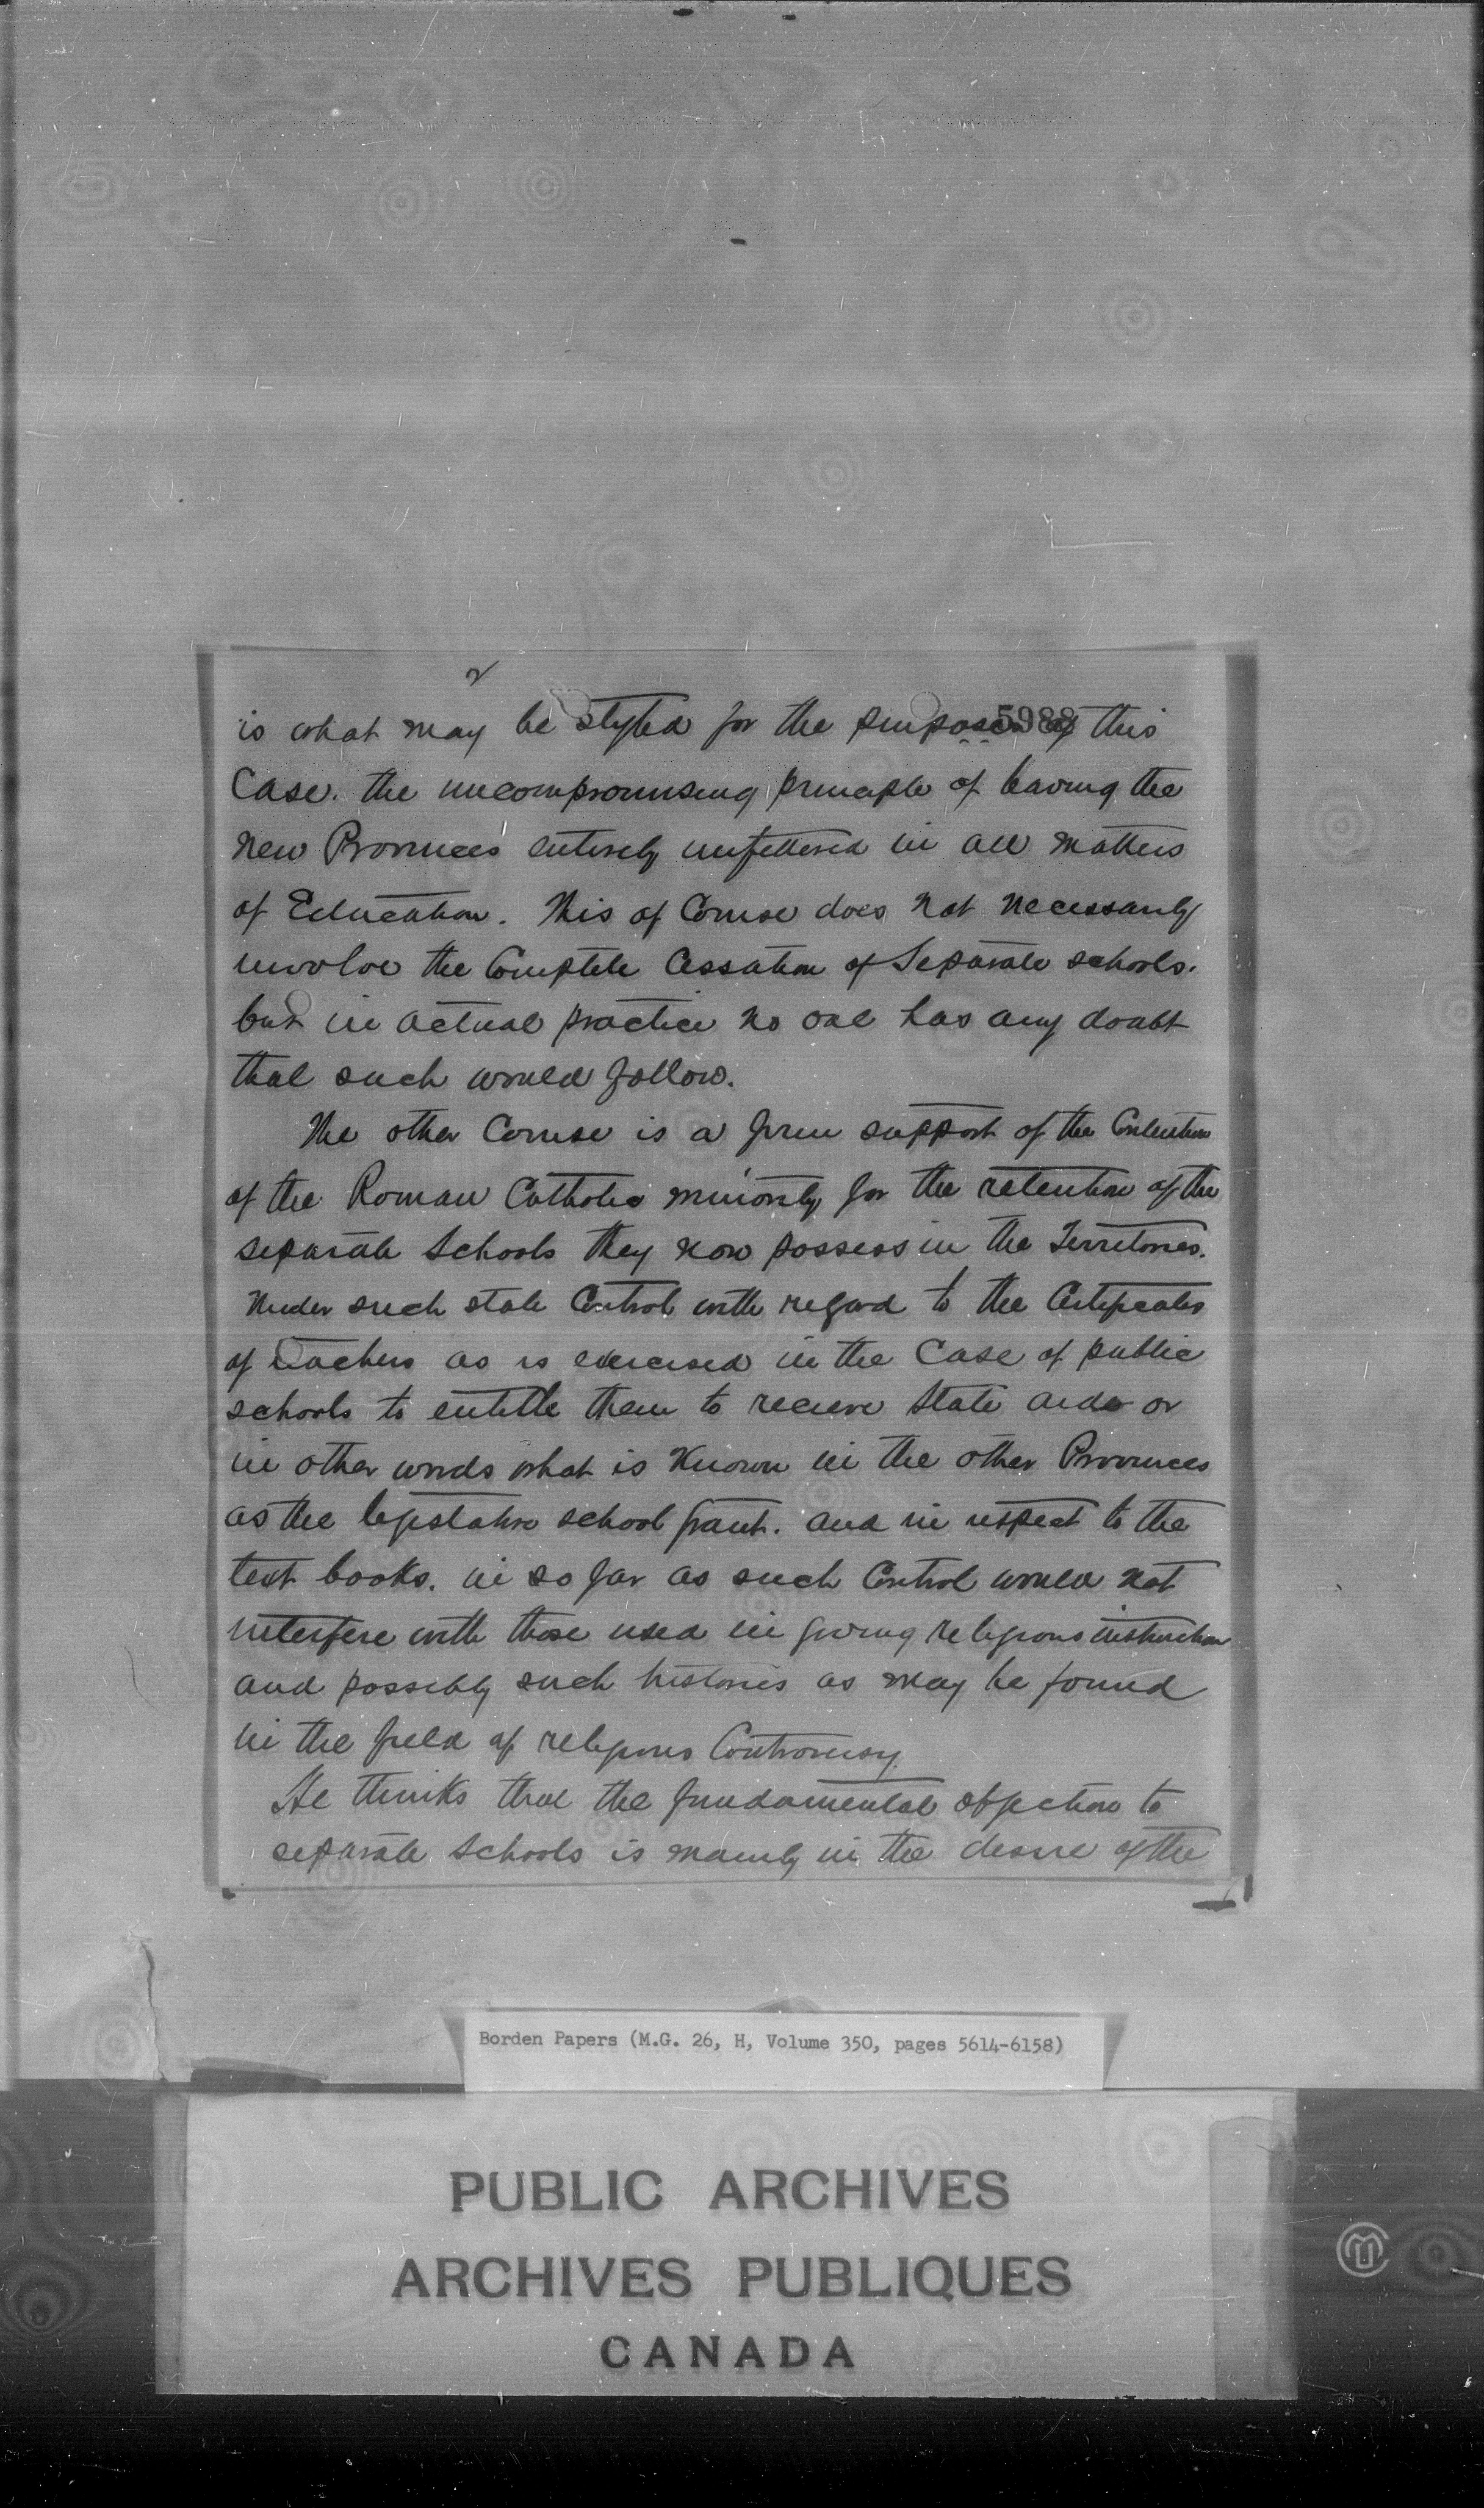 2
5988
is what may be styled for the purposes of this
Case. the uncompromising principle of leaving the
New Provinces entirely unfettered in all matters
of Education. This of Course does not necessarily
involve the Complete Cessation of Separate schools.
but in actual practice no one has any doubt
that such would follow.
The other Course is a firm support of the Contention
of the Roman Catholic minority for the retention of the
separate Schools they now possess in the Territories.
Under such state Control with regard to the Certificates
of teachers as is exercised in the Case of public
schools to entitle them to recieve State aid or
in other words what is Known in the other Provinces
as the legislative school grant. and in respect to the
text books. in so far as such Control would not
interfere with those used in giving religious instruction
and possibly such histories as may be found
in the field of religious Controversy.
He thinks that the fundamental objection to
separate schools is mainly in the desire of the
Borden Papers (M.G. 26, H, Volume 350, pages 5614-6158)
PUBLIC ARCHIVES
ARCHIVES PUBLIQUES
CANADA